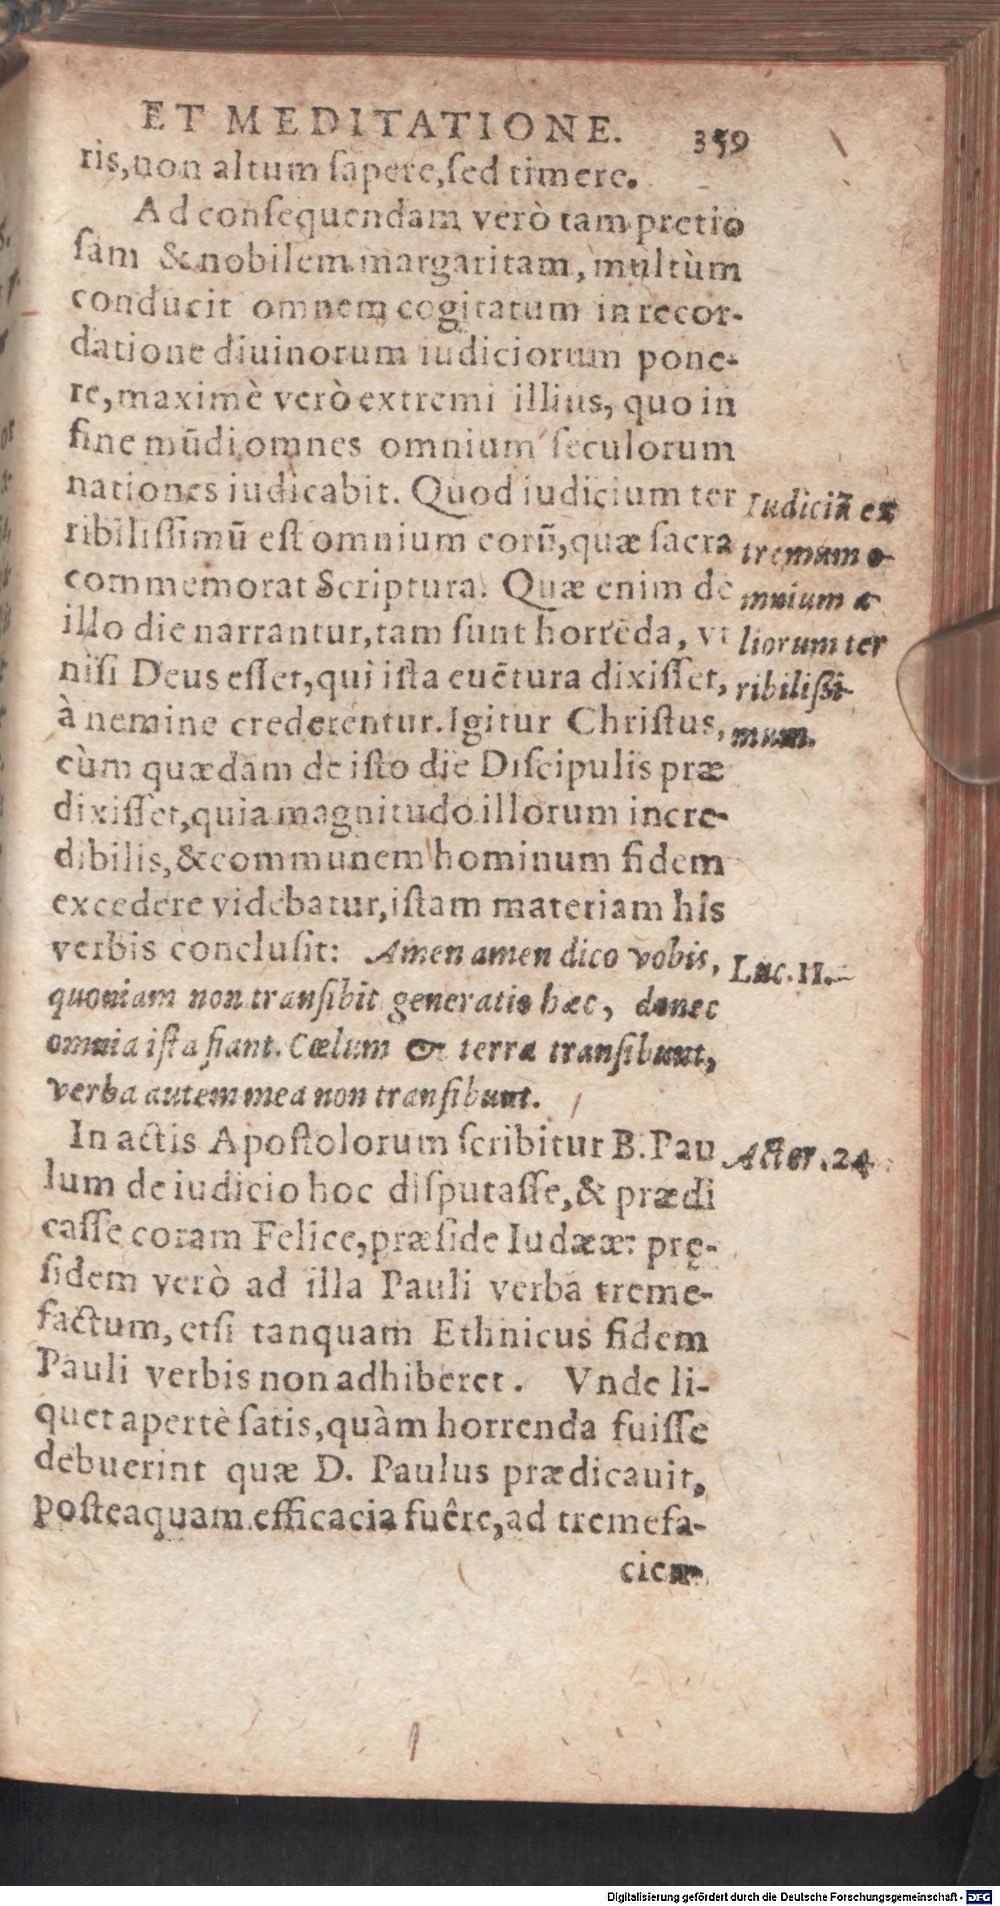 ET MEDITATIONE. 359
ris,non altum ſapere,ſed timere.
Ad conſequendam verò tam pretio
ſam & nobilem margaritam, multùm
conducit omnem cogitatum in recor-
datione diuinorum iudiciorum pone-
re,maximè verò extremi illius, quo in
fine mūdi omnes omnium ſeculorum
nationes iudicabit. Quod iudicium ter
ribiliſſimū eſt omnium eorū,quæ ſacra
commemorat Scriptura. Quæ enim de
illo die narrantur,tam ſunt horrēda, vt
niſi Deus eſſet,qui iſta euētura dixiſſet,
à nemine crederentur.Igitur Chriſtus,
cùm quædam de iſto die Diſcipulis præ
dixiſſet,quia magnitudo illorum incre-
dibilis,& communem hominum fidem
excedere videbatur,iſtam materiam his
verbis concluſit: Amen amen dico vobis,
quoniam non tranſibit generatio hæc, donec
omnia iſta fiant. Cœlum & terra tranſibunt,
verba autem mea non tranſibunt.
In actis Apoſtolorum ſcribitur B. Pau
lum de iudicio hoc diſputaſſe,& prædi
caſſe coram Felice,præſide Iudææ: prę-
ſidem verò ad illa Pauli verba treme-
factum, etſi tanquam Ethnicus fidem
Pauli verbis non adhiberet. Vnde li-
quet apertè ſatis,quàm horrenda fuiſſe
debuerint quæ D. Paulus prædicauit,
poſteaquam efficacia fuêre,ad tremefa-
cien-
Iudiciū ex
tremum o-
mnium a-
liorum ter
ribiliſſi-
mum.
Luc.II.
Actor.24
Digitalisierung gefördert durch die Deutsche Forschungsgemeinschaft - DFG